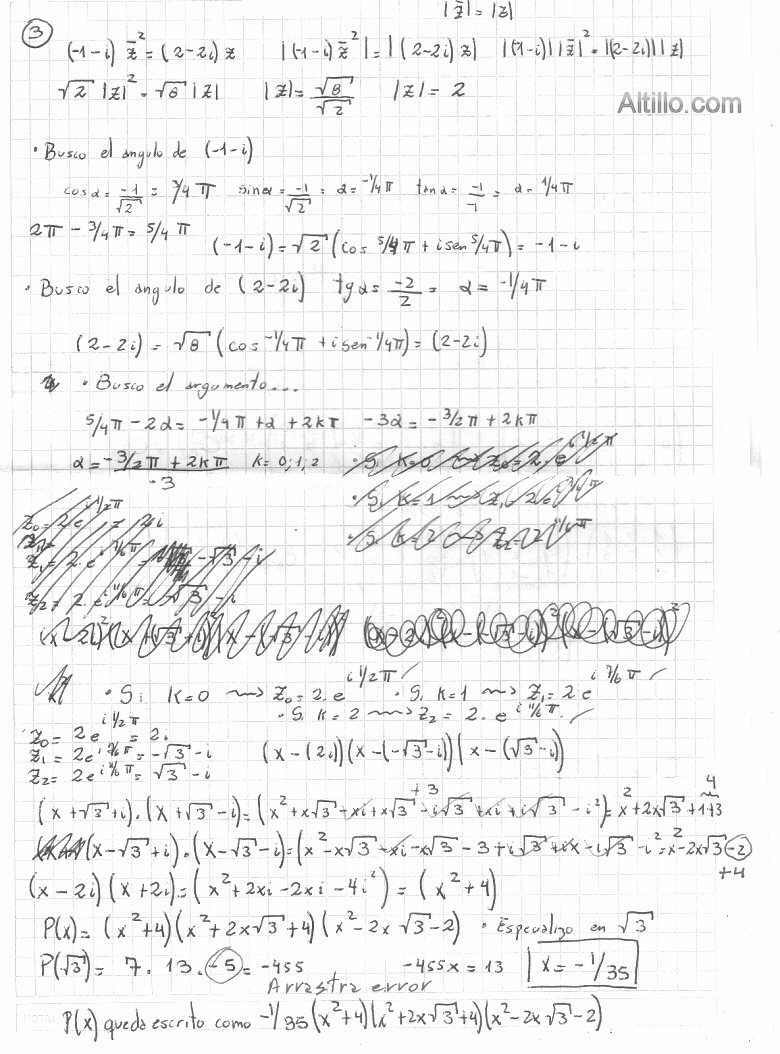 |z̄| = |z|
③
(-1-i) z̄² = (2-2i) z |(-1-i) z̄²| = |(2-2i) z| |(-1-i)| |z̄|² = |(2-2i)| |z|
√2 |z|² = √8 |z| |z| = √8/√2 |z| = 2
Altillo.com
• Busco el angulo de (-1-i)
cos α = -1/√2 = 3/4 π sin α = -1/√2 = α = -1/4 π tan α = -1/-1 = α = 1/4 π
2π - 3/4 π = 5/4 π
(-1-i) = √2 (cos 5/4 π + i sen 5/4 π) = -1-i
• Busco el angulo de (2-2i) tg α = -2/2 = α = -1/4 π
(2-2i) = √8 (cos -1/4 π + i sen -1/4 π) = (2-2i)
• Busco el argumento...
5/4 π - 2α = -1/4 π + α + 2kπ -3α = -3/2 π + 2kπ
α = (-3/2 π + 2kπ)/-3 K = 0; 1; 2
• Si K=0 ⟿ z₀ = 2. e^(i 1/2 π) • Si K=1 ⟿ z₁ = 2. e^(i 7/6 π)
• Si K=2 ⟿ z₂ = 2. e^(i 11/6 π).
z₀ = 2 e^(i 1/2 π) = 2i
z₁ = 2 e^(i 7/6 π) = -√3 - i
z₂ = 2 e^(i 11/6 π) = √3 - i
(x - (2i)) (x - (-√3 - i)) (x - (√3 - i))
+3 4
(x + √3 + i) . (x + √3 - i) = (x² + x√3 - xi + x√3 - i√3 + xi + i√3 - i²) = x² + 2x√3 + 1 + 3
(x - √3 + i) . (x - √3 - i) = (x² - x√3 - xi - x√3 - 3 + i√3 + ix - i√3 - i² = x² - 2x√3 - 2
+4
(x - 2i) (x + 2i) = (x² + 2xi - 2xi - 4i²) = (x² + 4)
P(x) = (x² + 4) (x² + 2x√3 + 4) (x² - 2x√3 - 2) • Especualizo en √3
P(√3) = 7 . 13 . -5 = -455 -455x = 13 x = -1/35
Arrastra error
P(x) queda escrito como -1/35 (x² + 4) (x² + 2x√3 + 4) (x² - 2x√3 - 2)